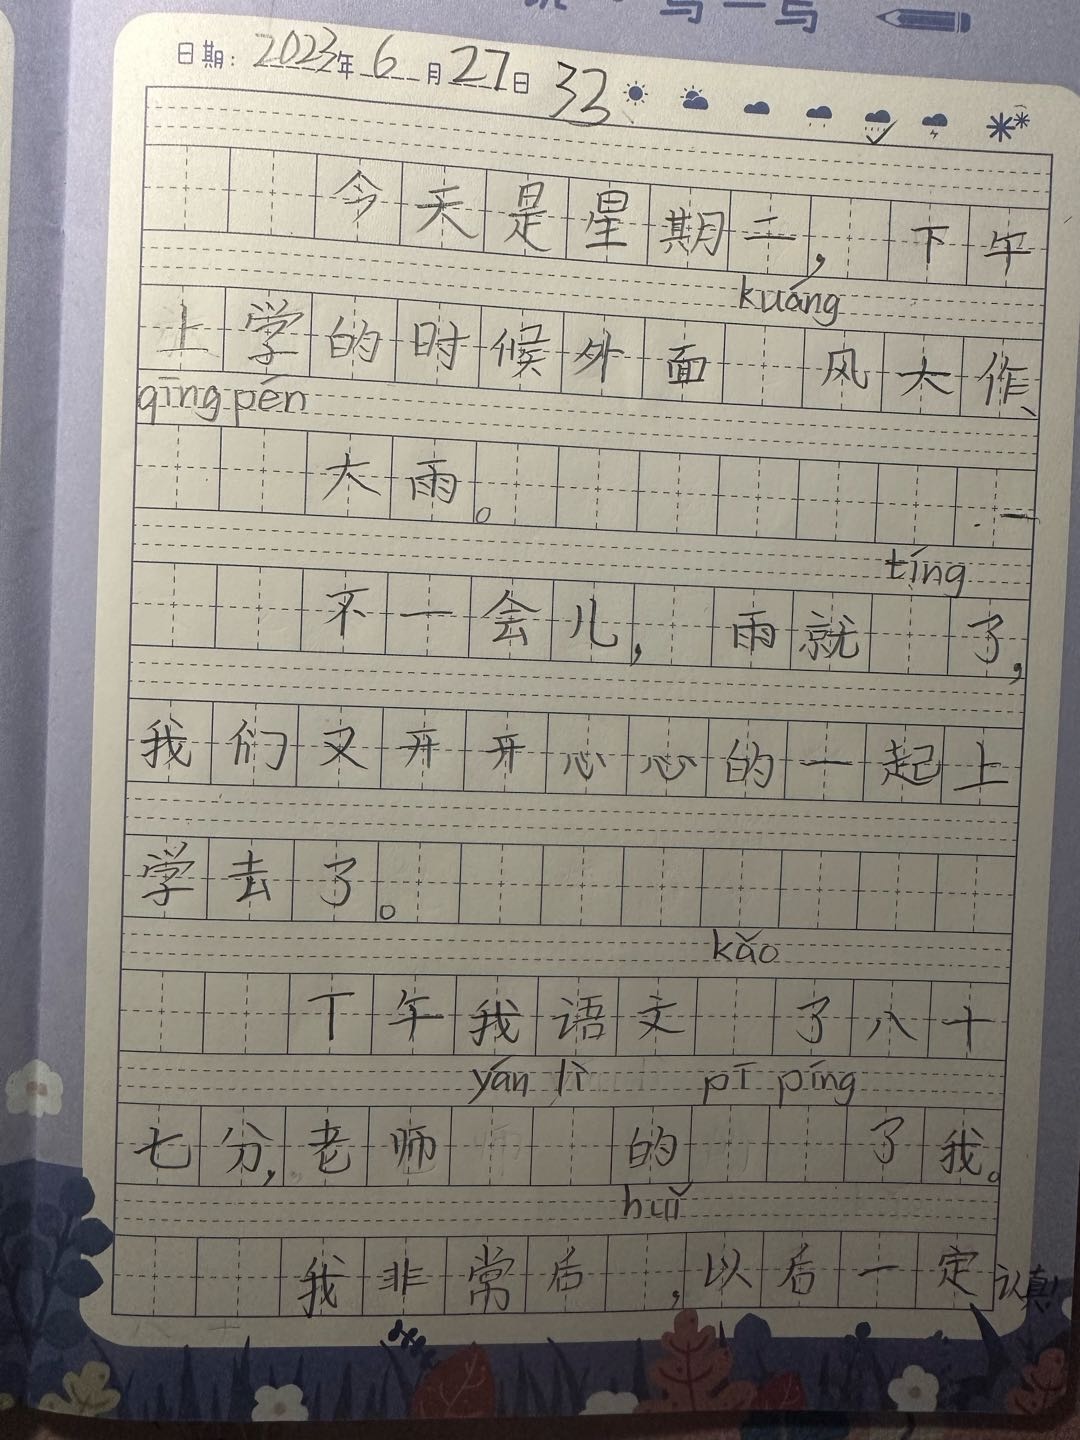 写一写
日期: 2023年 6 月 27日 33
今天是星期二，下午
kuáng
上学的时候外面 风大作、
qīng pén
大雨。 一
tíng
不一会儿，雨就 了，
我们又开开心心的一起上
学去了。
kǎo
下午我语文 了八十
yán lì pī píng
七分，老师 的 了我。
huǐ
我非常后 ，以后一定认真！